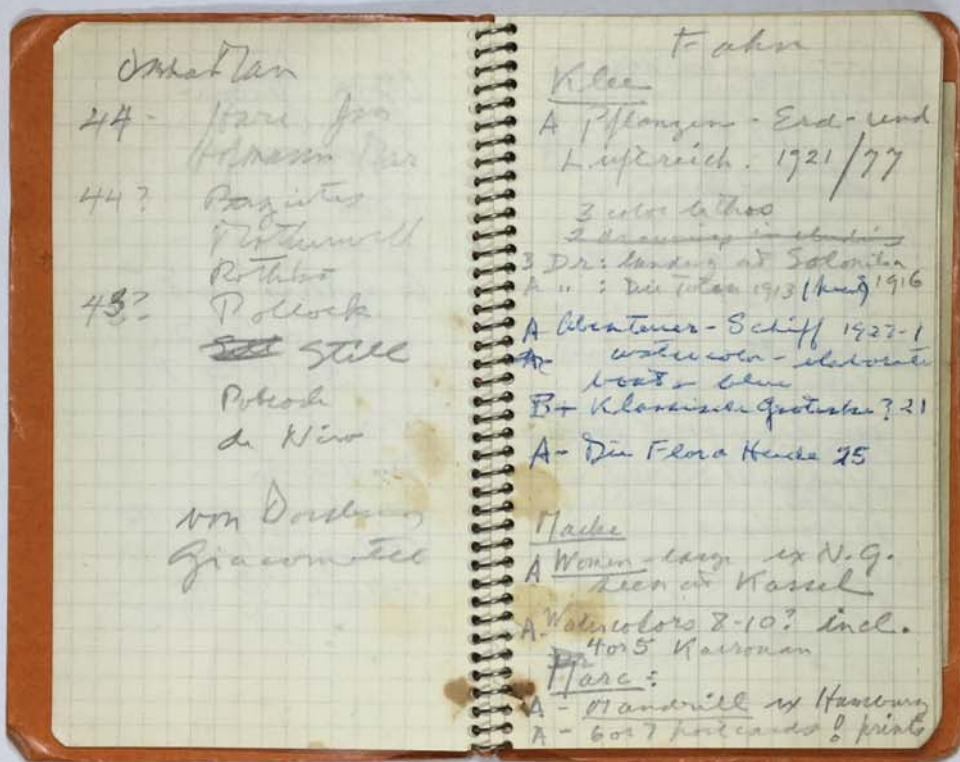 44 -
Hofmann
44? Baziotes
Motherwell
Rothko
43? Pollock
Still
Pollock
de Niro
von
Giacometti
Klee
A Pflanzen - Erd - und
Luftreich. 1921/77
3 color lithos
2 drawings including
3 Dr: landing at
A " : 1913 1916
A Abenteuer - Schiff 1927-1
A- watercolor - elaborate
boats blue
B+ Klassische Groteske? 21
A- Die Flora Heide 25
Macke
A Women - large ex N.G.
seen at Kassel
A- Watercolors 8-10? incl.
4 or 5 Kairouan
Marc:
A - Mandrill ex Hamburg
A - 6 or 7 postcards! prints